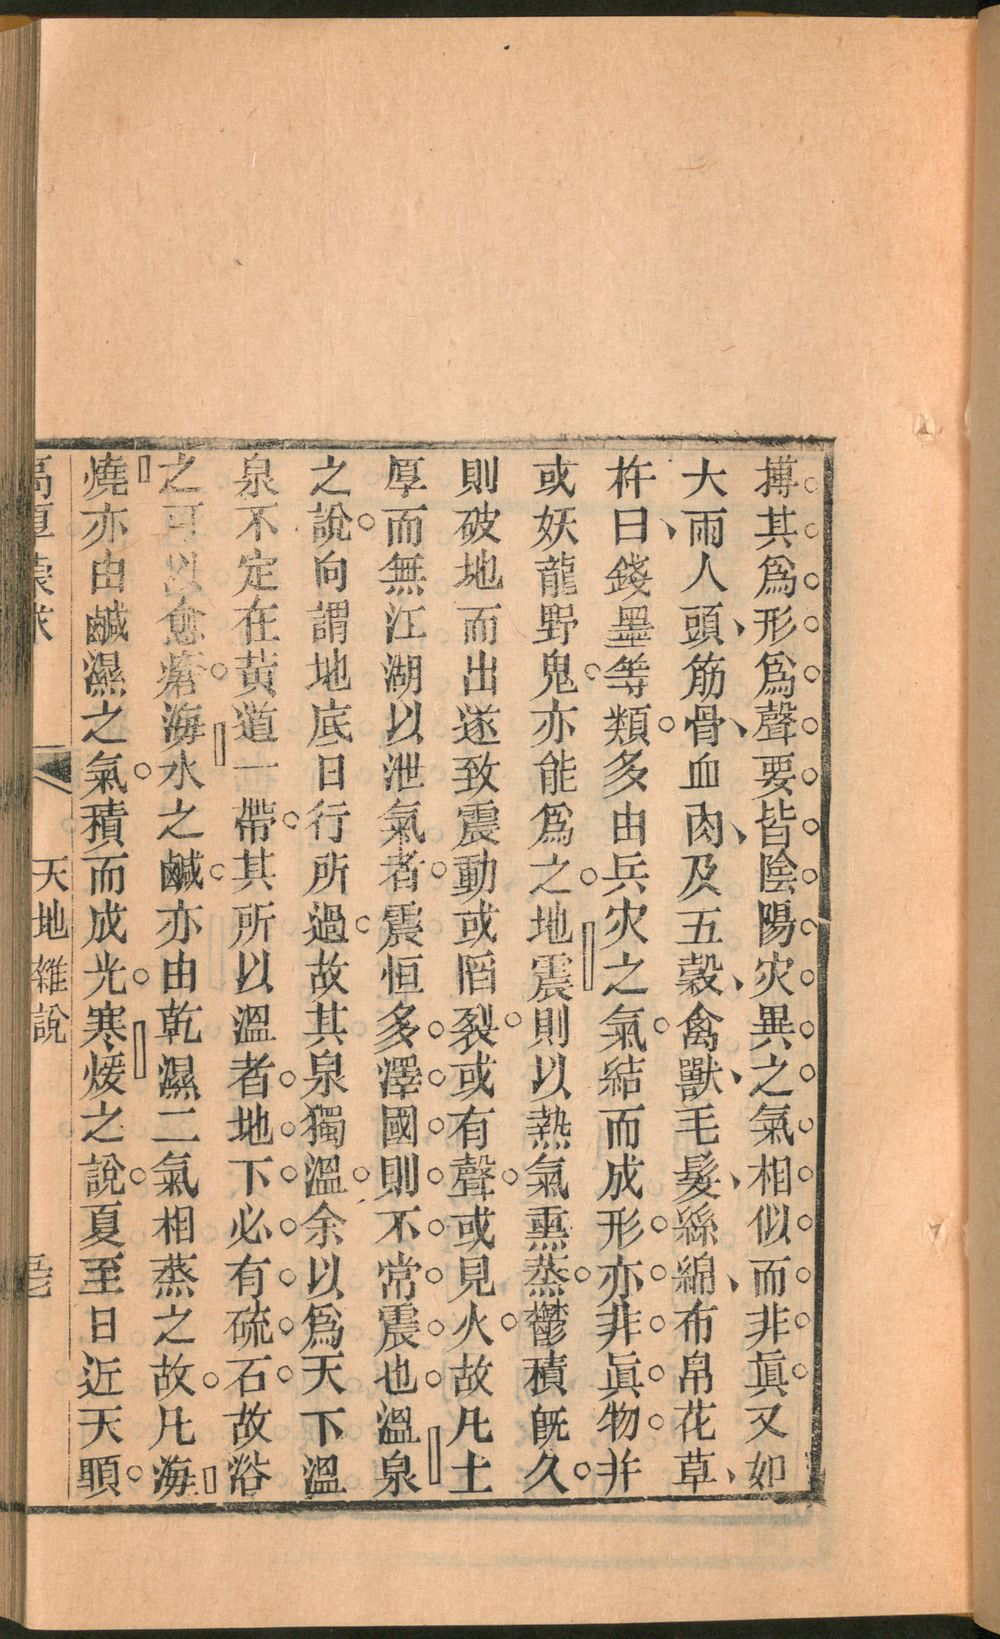 搏其爲形爲聲要皆陰陽灾異之氣相似而非眞又如
大雨人頭筋骨血肉及五穀禽獸毛髮絲綿布帛花草
杵臼錢墨等類多由兵灾之氣結而成形亦非眞物并
或妖龍野鬼亦能爲之地震則以熱氣熏蒸鬱積旣久
則破地而出遂致震動或䧟裂或有聲或見火故凡土
厚而無江湖以泄氣者震恒多澤國則不常震也溫泉
之說向謂地底日行所過故其泉獨溫余以爲天下溫
泉不定在黃道一帶其所以溫者地下必有硫石故浴
之可以愈瘡海水之鹹亦由乾濕二氣相蒸之故凡海
燒亦由鹹濕之氣積而成光寒煖之說夏至日近天頂
高厚蒙求 天地雜說